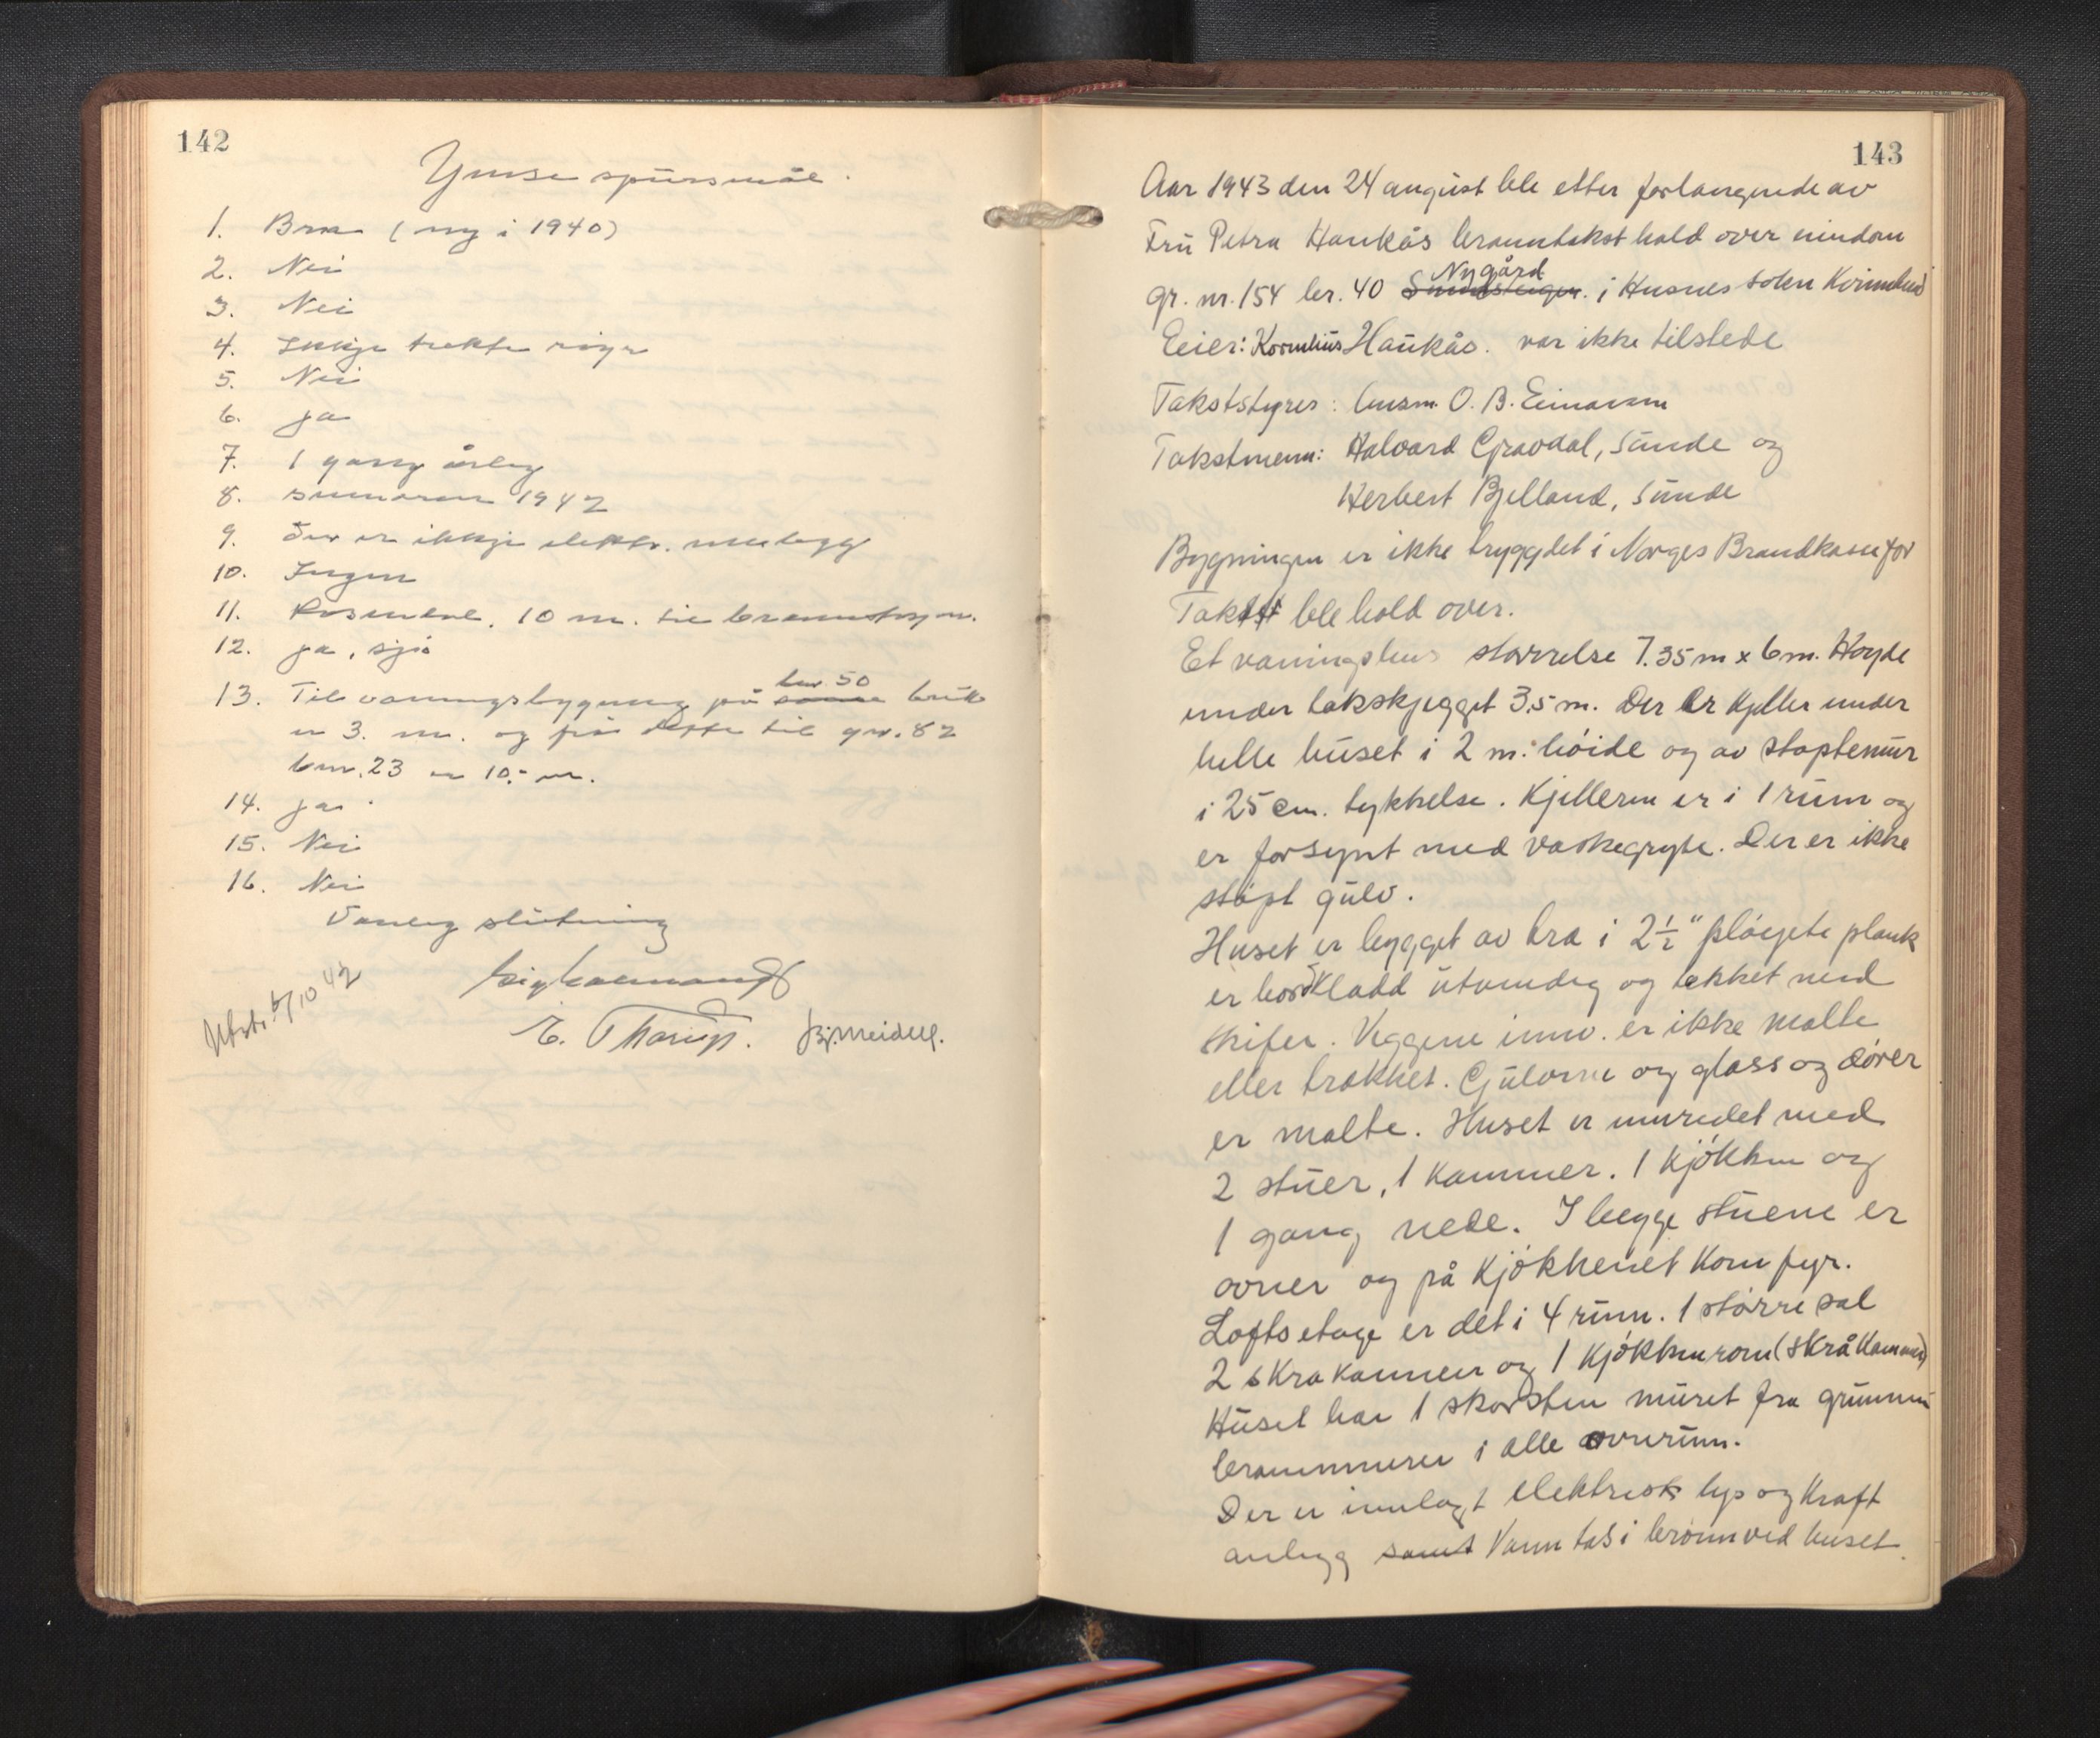 142
Ymse spursmål.
1. Bra (ny i 1940)
2. Nei
3. Nei
4. Ikkje trekte røyr
5. Nei
6. ja
7. 1 gang årleg
8. sumaren 1942
9. Der er ikkje elektr. innlegg
10. Ingen
11. Rosendal. 10 m. til
12. ja, sjø
13. Til vaaningsbygning på samme bnr 50 bruk
er 3. m. og frå dette til gnr. 82
bnr. 23 er 10,- m.
14. ja.
15. Nei
16. Nei
Vanleg slutning
Utskr. 5/10 42
E. Thorup. Bj. Meidell.
143
Aar 1943 den 24 august ble etter forlangende av
Fru Petra Haukås branntakst hold over eiendom
Nygård
gr. nr. 154 br. 40 i Husnes sokn Kvinnherad
Eeier: Kornelius Haukås. var ikke tilstede
Takststyrer: lensm. O. B. Einarsen
Takstmenn: Halvard Gravdal, Sunde og
Herbert Bjelland, Sunde
Bygningen er ikke tryggdet i Norges Brandkasse før
Takst ble hold over.
Et vaningshus størrelse 7.35 m x 6 m. Høyde
under takskjegget 3.5 m. Der er kjeller under
helle huset i 2 m. høide og av støptemur
i 25 cm. tykkelse. Kjelleren er i 1 rum og
er forsynt med vaskegryte. Der er ikke
støpt gulv.
Huset er bygget av tra i 2 1/2" pløiete plank
er bordkladd utvendig og tekket med
skifer. Veggene innv. er ikke malte
eller trekket. Gulvene og glass og dører
er malte. Huset er innredet med
2 stuer, 1 kammer. 1 kjøkken og
1 gang nede. I begge stuene er
ovner og på kjøkkenet komfyr.
Loftsetage er det i 4 rum. 1 større sal
2 skrakammer og 1 kjøkkenrom (skråkammer)
Huset har 1 skorsten muret fra grunnen
brannmurer i alle ovnrum.
Der er innlagt elektrisk lys og kraft
anlegg samt Vann tas i brønn ved huset.